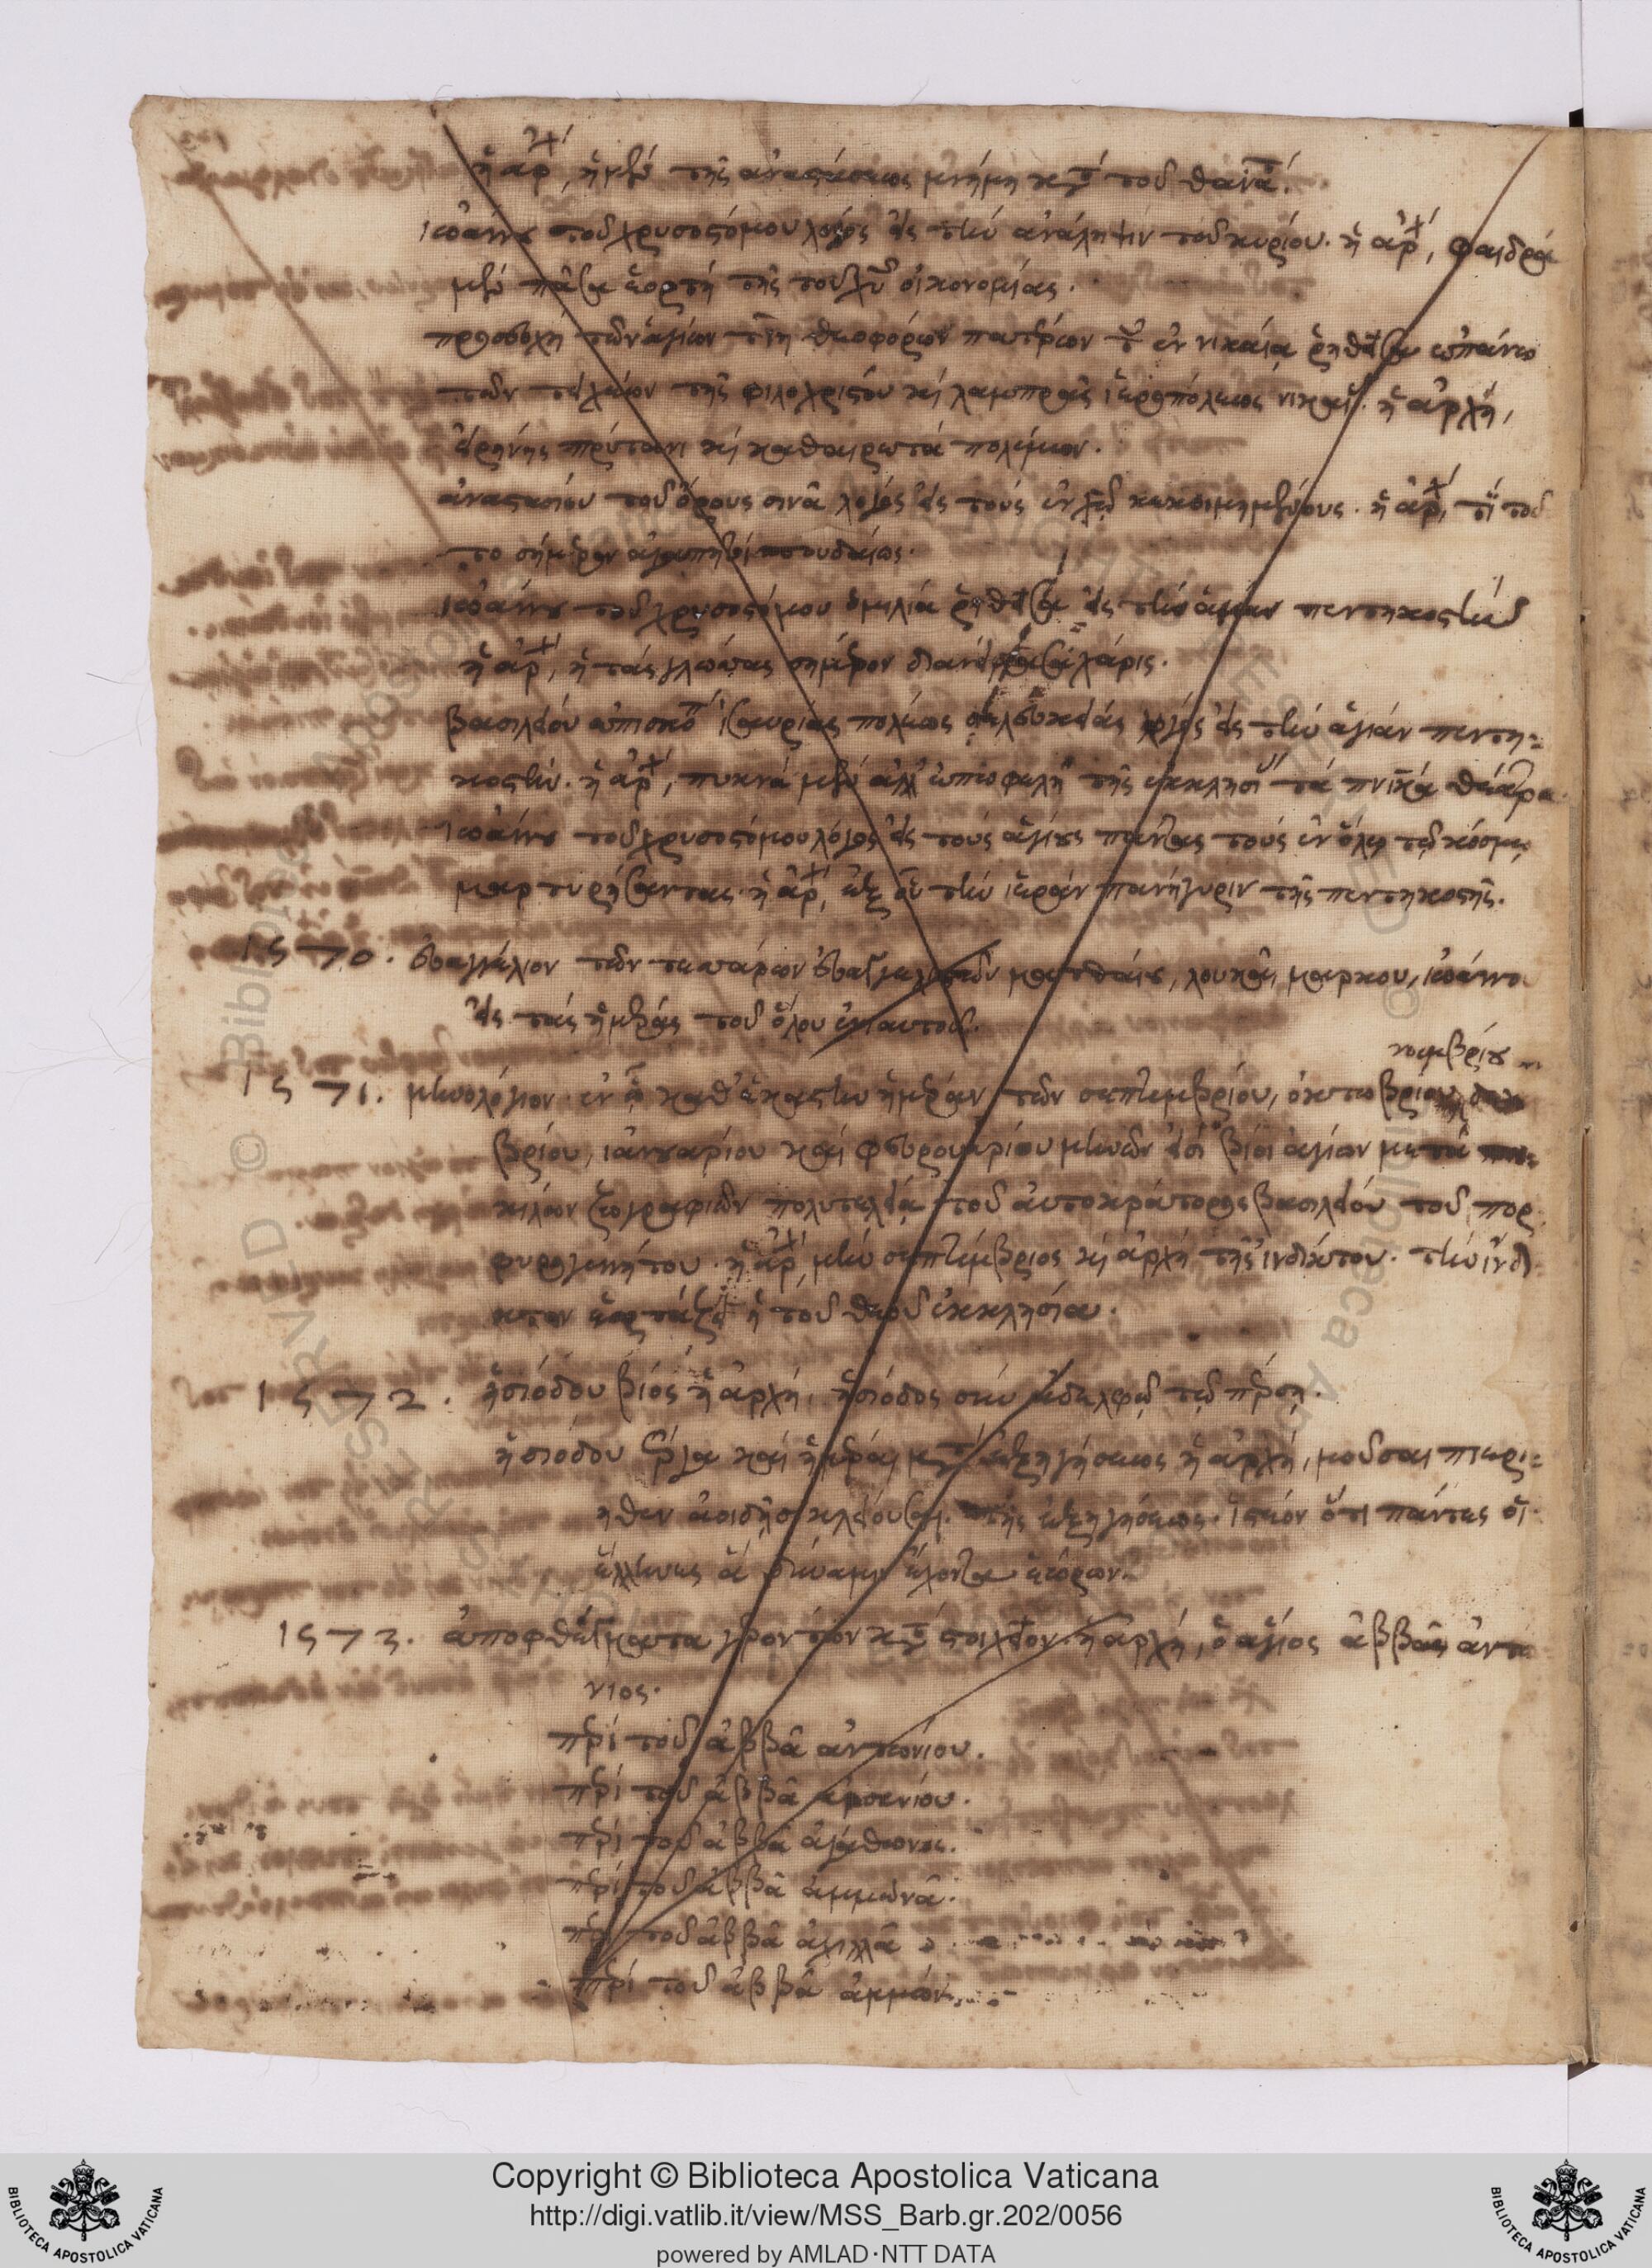 ἡ ἀρχ, ἡ μὲν τῆς ἀναστάσεως μνήμη κτ τοῦ θανάτ.
ἰωάννου τοῦ χρυσοστόμου λόγος εἰς τὴν ἀνάληψιν τοῦ κυρίου. ἡ ἀρχ, φαιδρὰ
μὲν πᾶσα ἑορτὴ τῆς τοῦ χυ οἰκονομίας.
τῶν ἁγίων τιη θεοφόρων πατέρων ἐν νικαία ῥηθεῖσα ἐπάνω
τῶν τειχέων τῆς φιλοχρίστου καὶ λαμπρᾶς νικαί. ἡ ἀρχή,
εἰρήνης πρύτανι καὶ καθαιρωτὰ πολέμων.
ἀναστασίου τοῦ ὄρους σινᾶ λόγος εἰς τοὺς ἐν χῶ κεκοιμημένους. ἡ ἀρχ, τί τοῦ
το σήμερον ἀγαπητοὶ σπουδαίως.
ἰωάννου τοῦ χρυσοστόμου ὁμιλία ῥηθεῖσα εἰς τὴν ἁγίαν πεντηκοστὴν
ἡ ἀρχ, ἡ τὰς γλώσσας σήμερον χάρις.
βασιλείου ἐπισκόπ ἰσαυρίας πόλεως σελευκείας λόγος εἰς τὴν ἁγίαν πεντη=
κοστήν. ἡ ἀρχ, πυκνὰ μὲν ἀλλ' τῆς ἐκκλησί τὰ πνικὰ θέατρα.
ἰωάννου τοῦ χρυσοστόμου λόγος εἰς τοὺς ἁγίους πάντας τοὺς ἐν ὅλῳ τῷ κόσμῳ
μαρτυρήσαντας. ἡ ἀρχ, ἐξ οὗ τὴν ἱερὰν πανήγυριν τῆς πεντηκοστῆς.
1570. εὐαγγέλιον τῶν τεσσάρων εὐαγγελιστῶν ματθαίου, λουκᾶ, μάρκου, ἰωάννου
εἰς τὰς ἡμέρας τοῦ ὅλου ἐνιαυτοῦ.
νοεμβρίου
1571. μηνολόγιον. ἐν ᾧ καθ' ἑκάστην ἡμέραν τῶν σεπτεμβρίου, ὀκτωβρίου
βρίου, ἰανουαρίου καὶ φευρουαρίου μηνῶν εἰσὶ βίοι ἁγίων μετὰ
κιλῶν ζωγραφιῶν πολυτελέᾳ τοῦ αὐτοκράτορος βασιλείου τοῦ πορ
φυρογεννήτου. ἡ ἀρχ, μὴν σεπτέμβριος καὶ ἀρχὴ τῆς ἰνδίκτου. τὴν ἴνδι
κτον ἑορτάζει ἡ τοῦ θεοῦ ἐκκλησία.
1572. ἡσιόδου βίος ἡ ἀρχή, ἡσίοδος σὺν ἀδελφῷ τῷ πέρσῃ.
ἡσιόδου ἔργα καὶ ἡμέραι μετὰ ἐξηγήσεως ἡ ἀρχή, μοῦσαι πιερί=
ηθεν ἀοιδῇσι κλείουσαι. τῆς ἐξηγήσεως. ἰστέον ὅτι πάντες οἱ
ἕλληνες ἃ δύναμιν ἔχοντα ἑώρων.
1573. ἀποφθέγματα γερόντων κτ στοιχεῖον. ἡ ἀρχή, ὁ ἅγιος ἀββᾶς ἀντώ
νιος.
περὶ τοῦ ἀββᾶ ἀντωνίου.
περὶ τοῦ ἀββᾶ ἀρσενίου.
περὶ τοῦ ἀββᾶ ἀγάθωνος.
περὶ τοῦ ἀββᾶ ἀμμωνᾶ.
περὶ τοῦ ἀββᾶ ἀχιλλᾶ
περὶ τοῦ ἀββᾶ ἀμμών
Copyright © Biblioteca Apostolica Vaticana
http://digi.vatlib.it/view/MSS_Barb.gr.202/0056
powered by AMLAD·NTT DATA
BIBLIOTECA APOSTOLICA VATICANA
BIBLIOTECA APOSTOLICA VATICANA